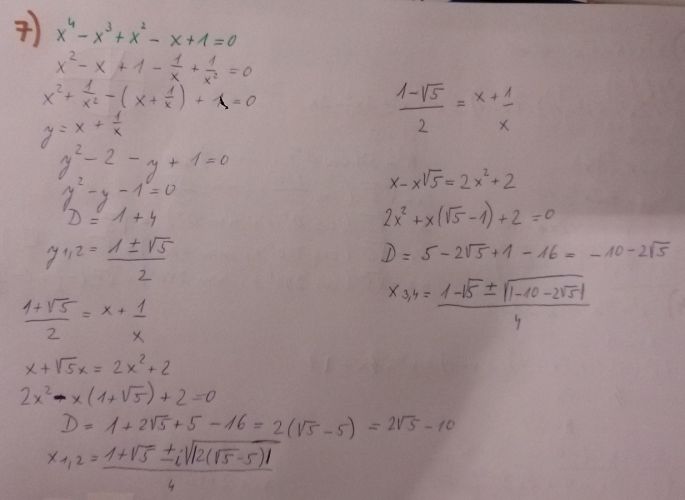 7) x⁴ - x³ + x² - x + 1 = 0
x² - x + 1 - 1/x + 1/x² = 0
x² + 1/x² - (x + 1/x) + 1 = 0
y = x + 1/x
y² - 2 - y + 1 = 0
y² - y - 1 = 0
D = 1 + 4
y₁,₂ = (1 ± √5)/2
(1+√5)/2 = x + 1/x
x + √5x = 2x² + 2
2x² - x(1+√5) + 2 = 0
D = 1 + 2√5 + 5 - 16 = 2(√5 - 5) = 2√5 - 10
x₁,₂ = (1+√5 ± i√|2(√5-5)|)/4
(1-√5)/2 = x + 1/x
x - x√5 = 2x² + 2
2x² + x(√5 - 1) + 2 = 0
D = 5 - 2√5 + 1 - 16 = -10 - 2√5
x₃,₄ = (1-√5 ± √|-10-2√5|)/4